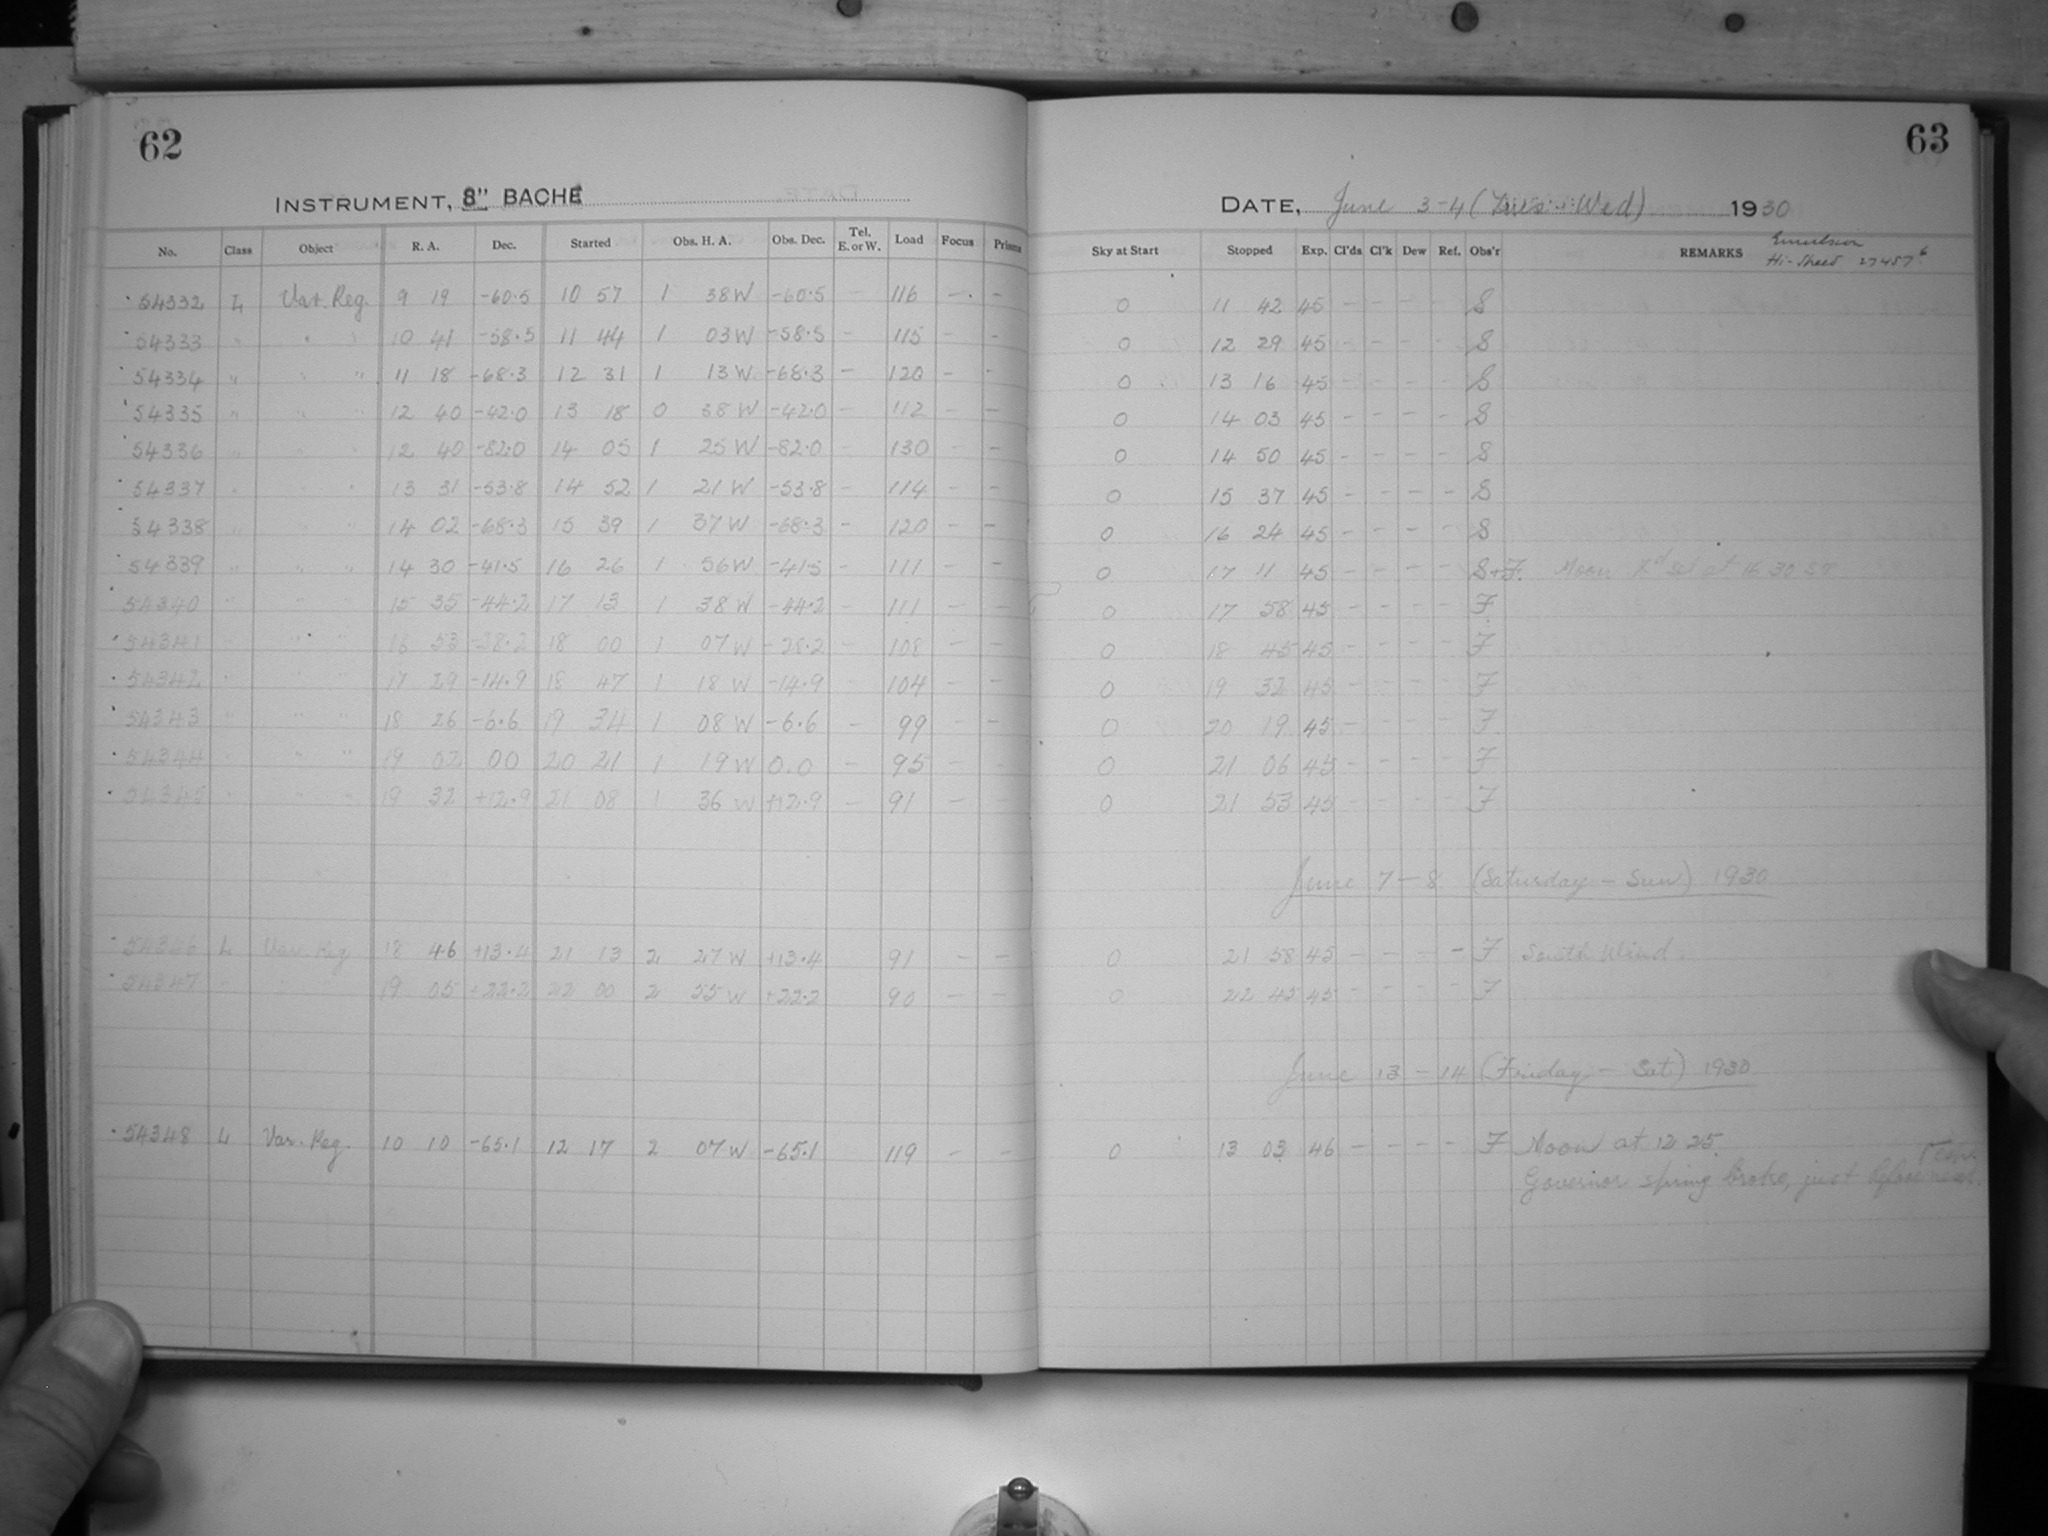 62
INSTRUMENT, 8" BACHE
No. Class Object R. A. Dec. Started Obs. H. A. Obs. Dec. Tel. E. or W. Load Focus Prisms
54332 L Var. Reg. 9 19 -60.5 10 57 1 38 W -60.5 - 116 - -
54333 " " " 10 41 -58.5 11 44 1 03 W -58.5 - 115 - -
54334 " " " 11 18 -68.3 12 31 1 13 W -68.3 - 120 - -
54335 " " " 12 40 -42.0 13 18 0 38 W -42.0 - 112 - -
54336 " " " 12 40 -82.0 14 05 1 25 W -82.0 - 130 - -
54337 " " " 13 31 -53.8 14 52 1 21 W -53.8 - 114 - -
54338 " " " 14 02 -68.3 15 39 1 37 W -68.3 - 120 - -
54339 " " " 14 30 -41.5 16 26 1 56 W -41.5 - 111 - -
54340 " " " 15 35 -44.2 17 13 1 38 W -44.2 - 111 - -
54341 " " " 16 53 -28.2 18 00 1 07 W -28.2 - 108 - -
54342 " " " 17 29 -14.9 18 47 1 18 W -14.9 - 104 - -
54343 " " " 18 26 -6.6 19 34 1 08 W -6.6 - 99 - -
54344 " " " 19 02 00 20 21 1 19 W 0.0 - 95 - -
54345 " " " 19 32 +12.9 21 08 1 36 W +12.9 - 91 - -
54346 L Var. Reg 18 46 +13.4 21 13 2 27 W +13.4 91 - -
54347 " " " 19 05 +22.2 22 00 2 55 W +22.2 90 - -
54348 L Var. Reg. 10 10 -65.1 12 17 2 07 W -65.1 119 - -
63
DATE, June 3-4 (Tues - Wed) 1930
Sky at Start Stopped Exp. Cl'ds Cl'k Dew Ref. Obs'r REMARKS Emulsion
Hi-Speed 27457 6
0 11 42 45 - - - - S
0 12 29 45 - - - - S
0 13 16 45 - - - - S
0 14 03 45 - - - - S
0 14 50 45 - - - - S
0 15 37 45 - - - - S
0 16 24 45 - - - - S
0 17 11 45 - - - - S+F. Moon set at 16 30 ST
0 17 58 45 - - - - F
0 18 45 45 - - - - F
0 19 32 45 - - - - F
0 20 19 45 - - - - F
0 21 06 45 - - - - F
0 21 53 45 - - - - F
June 7-8 (Saturday - Sun) 1930
0 21 58 45 - - - - F South Wind.
0 22 45 45 - - - - F
June 13-14 (Friday - Sat) 1930
0 13 03 46 - - - - F Moon at 12 25.
Governor spring broke, just before